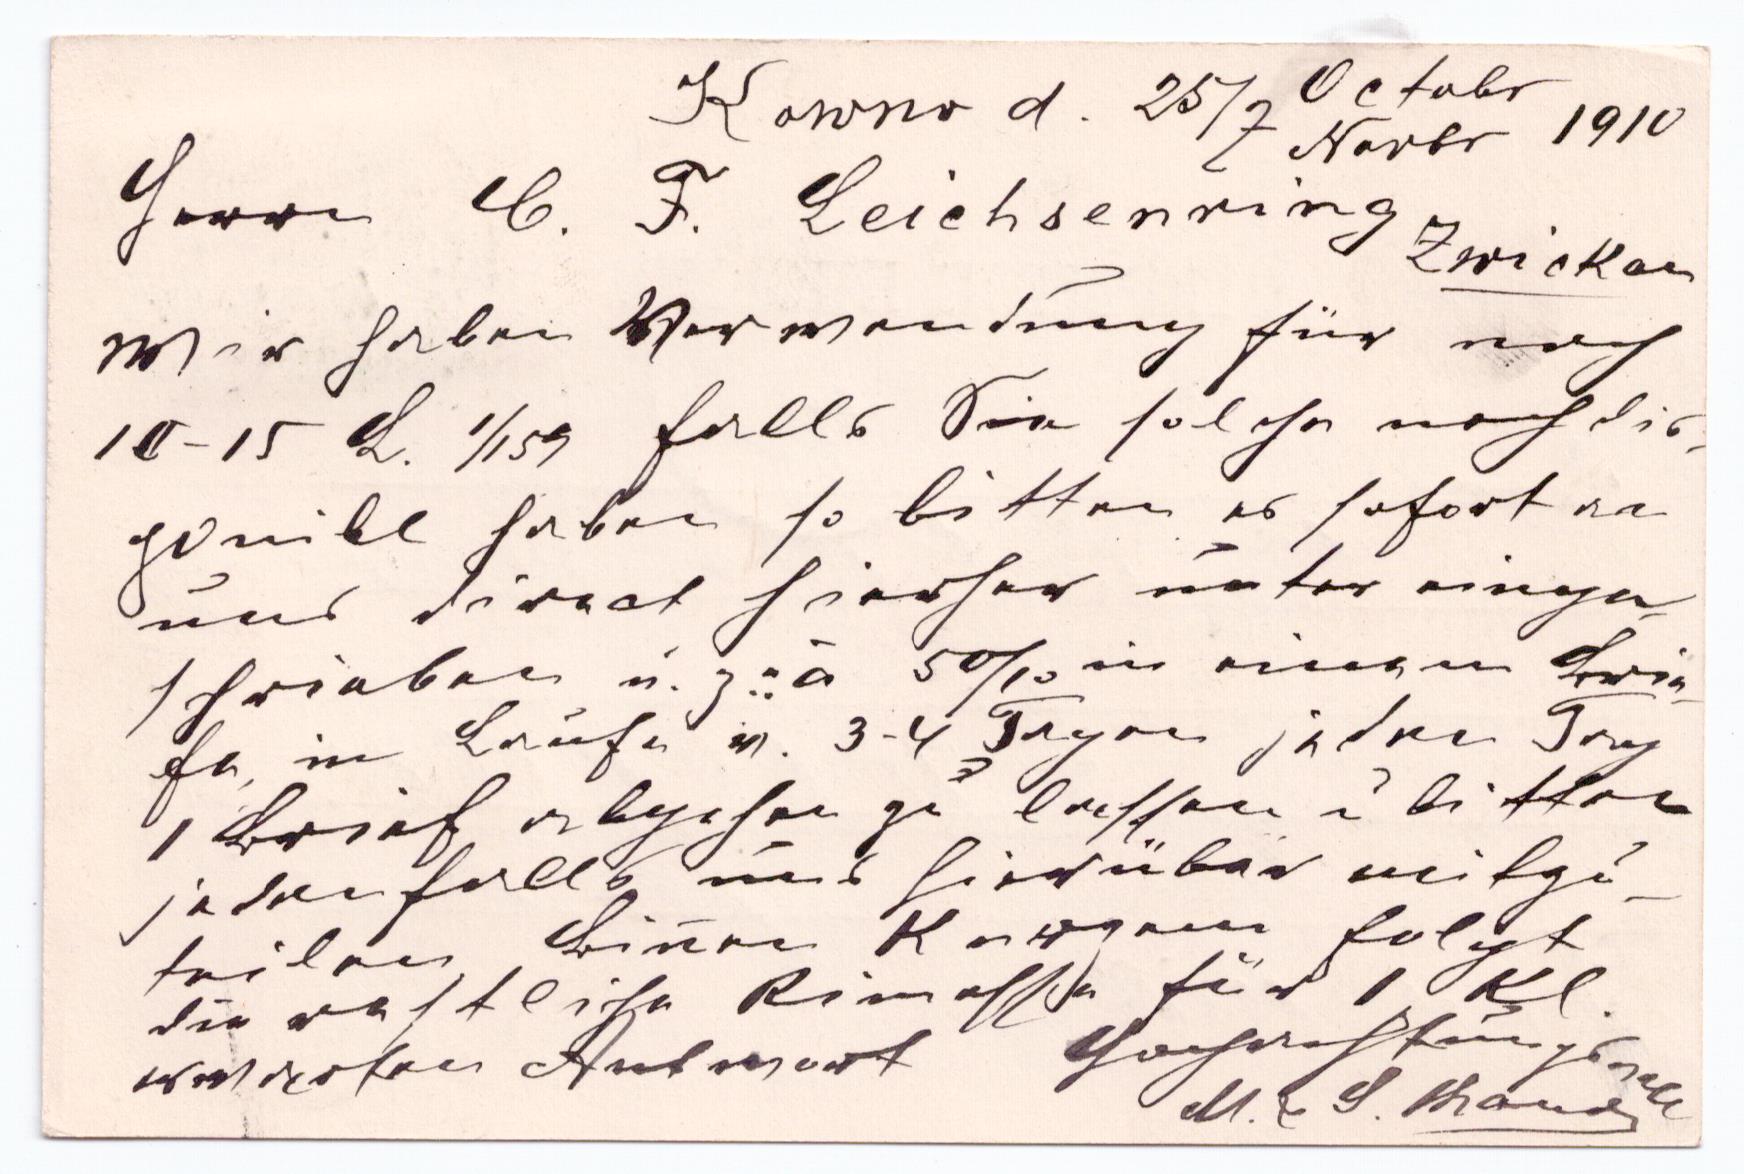 Kowno d. 25/7 October Novbr 1910
Herrn C. F. Leichsenring
Zwickau
Wir haben Verwendung für noch
10-15 L. 1/159 falls Sie solche noch dis-
ponibl haben so bitten es sofort an
uns direct hierher unter einge-
schrieben u. zw: à 50/10 in einem Brie-
fe, im Laufe v. 3-4 Tagen jeden Tag
1 Brief abgehen zu lassen u bitten
jedenfalls uns hierüber mitzu-
teilen Binnen Kurzem folgt
die restliche Rimesse für 1 Kl.
erwarten Antwort Hochachtungsvoll
M. & S.